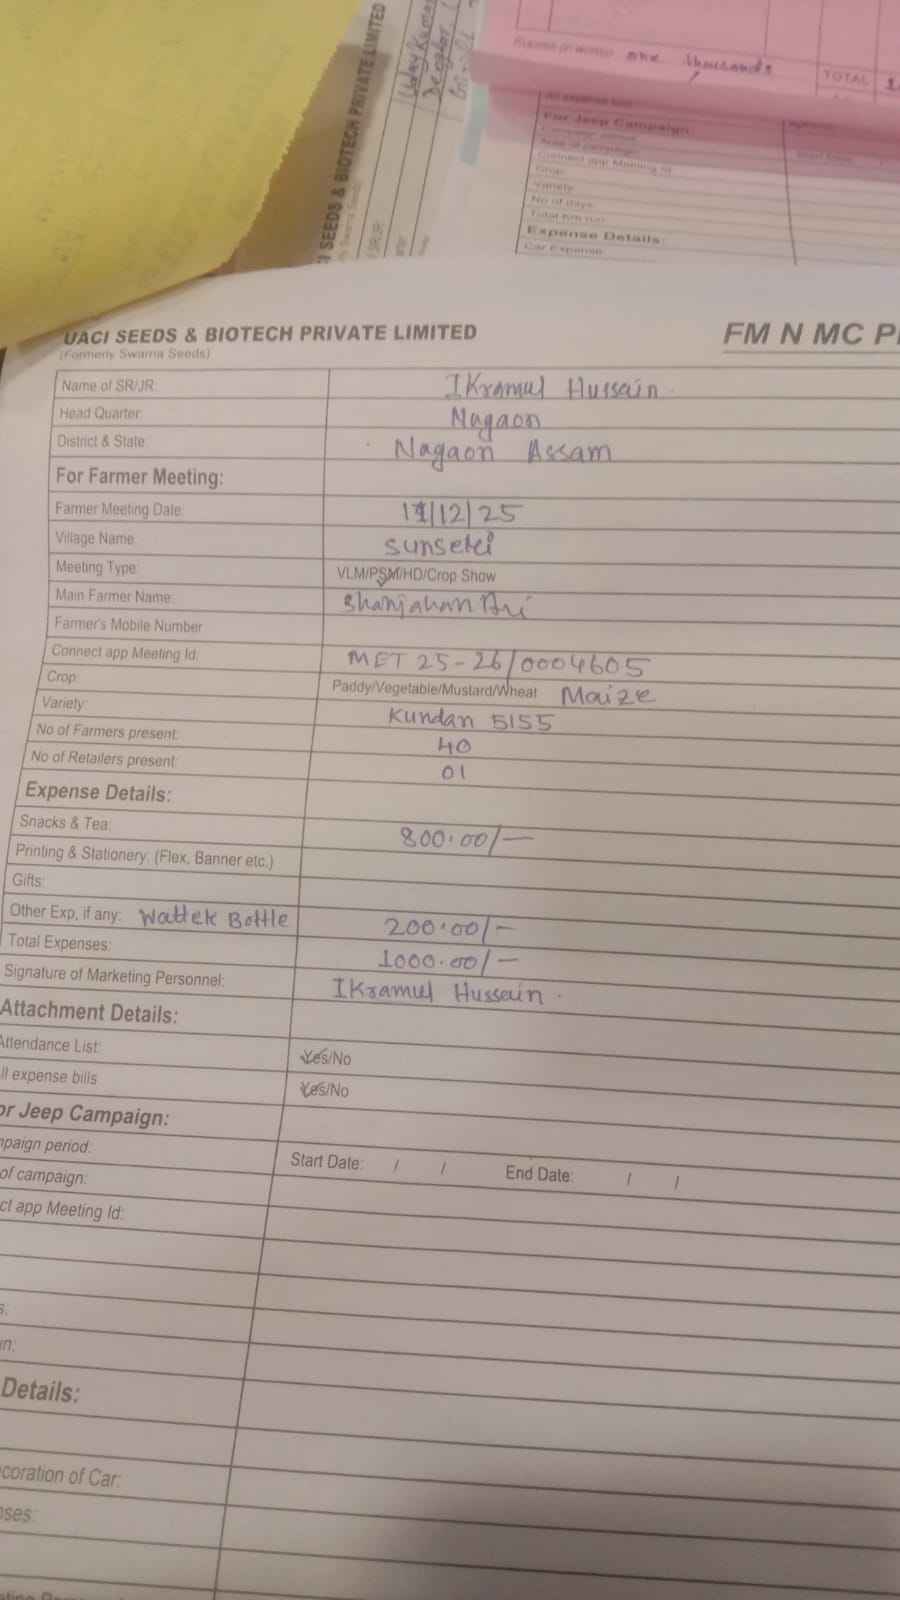 I SEEDS & BIOTECH PRIVATE LIMITED
Uday Kumar
one thousands
TOTAL
For Jeep Campaign
No of days
Total km run
Expense Details:
Car Expense
UACI SEEDS & BIOTECH PRIVATE LIMITED FM N MC
(Formerly Swarna Seeds)
Name of SR/JR: IKramul Hussain.
Head Quarter: Nagaon
District & State: Nagaon Assam
For Farmer Meeting:
Farmer Meeting Date: /12/25
Village Name:
Meeting Type: VLM/PSM/HD/Crop Show
Main Farmer Name:
Farmer's Mobile Number
Connect app Meeting Id: MET 25-26/0004605
Crop: Paddy/Vegetable/Mustard/Wheat Maize
Variety: Kundan 5155
No of Farmers present: 40
No of Retailers present: 01
Expense Details:
Snacks & Tea: 800.00/-
Printing & Stationery: (Flex, Banner etc.)
Gifts:
Other Exp, if any: Bottle 200.00/-
Total Expenses: 1000.00/-
Signature of Marketing Personnel: IKramul Hussein.
Attachment Details:
Attendance List: Yes/No
ll expense bills Yes/No
or Jeep Campaign:
mpaign period: Start Date: / / End Date: / /
of campaign:
ct app Meeting Id:
s:
Details:
coration of Car:
nses: